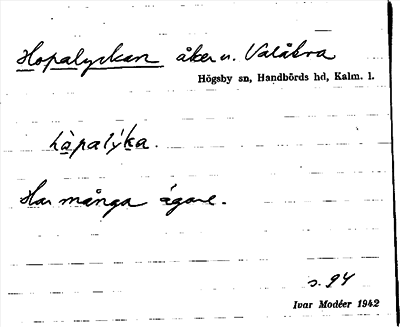 Hopalyckan åker u. Valåkra
Högsby sn, Handbörds hd, Kalm. l.
hò̱palýḵa.
Har många ägare.
s. 94
Ivar Modéer 1942